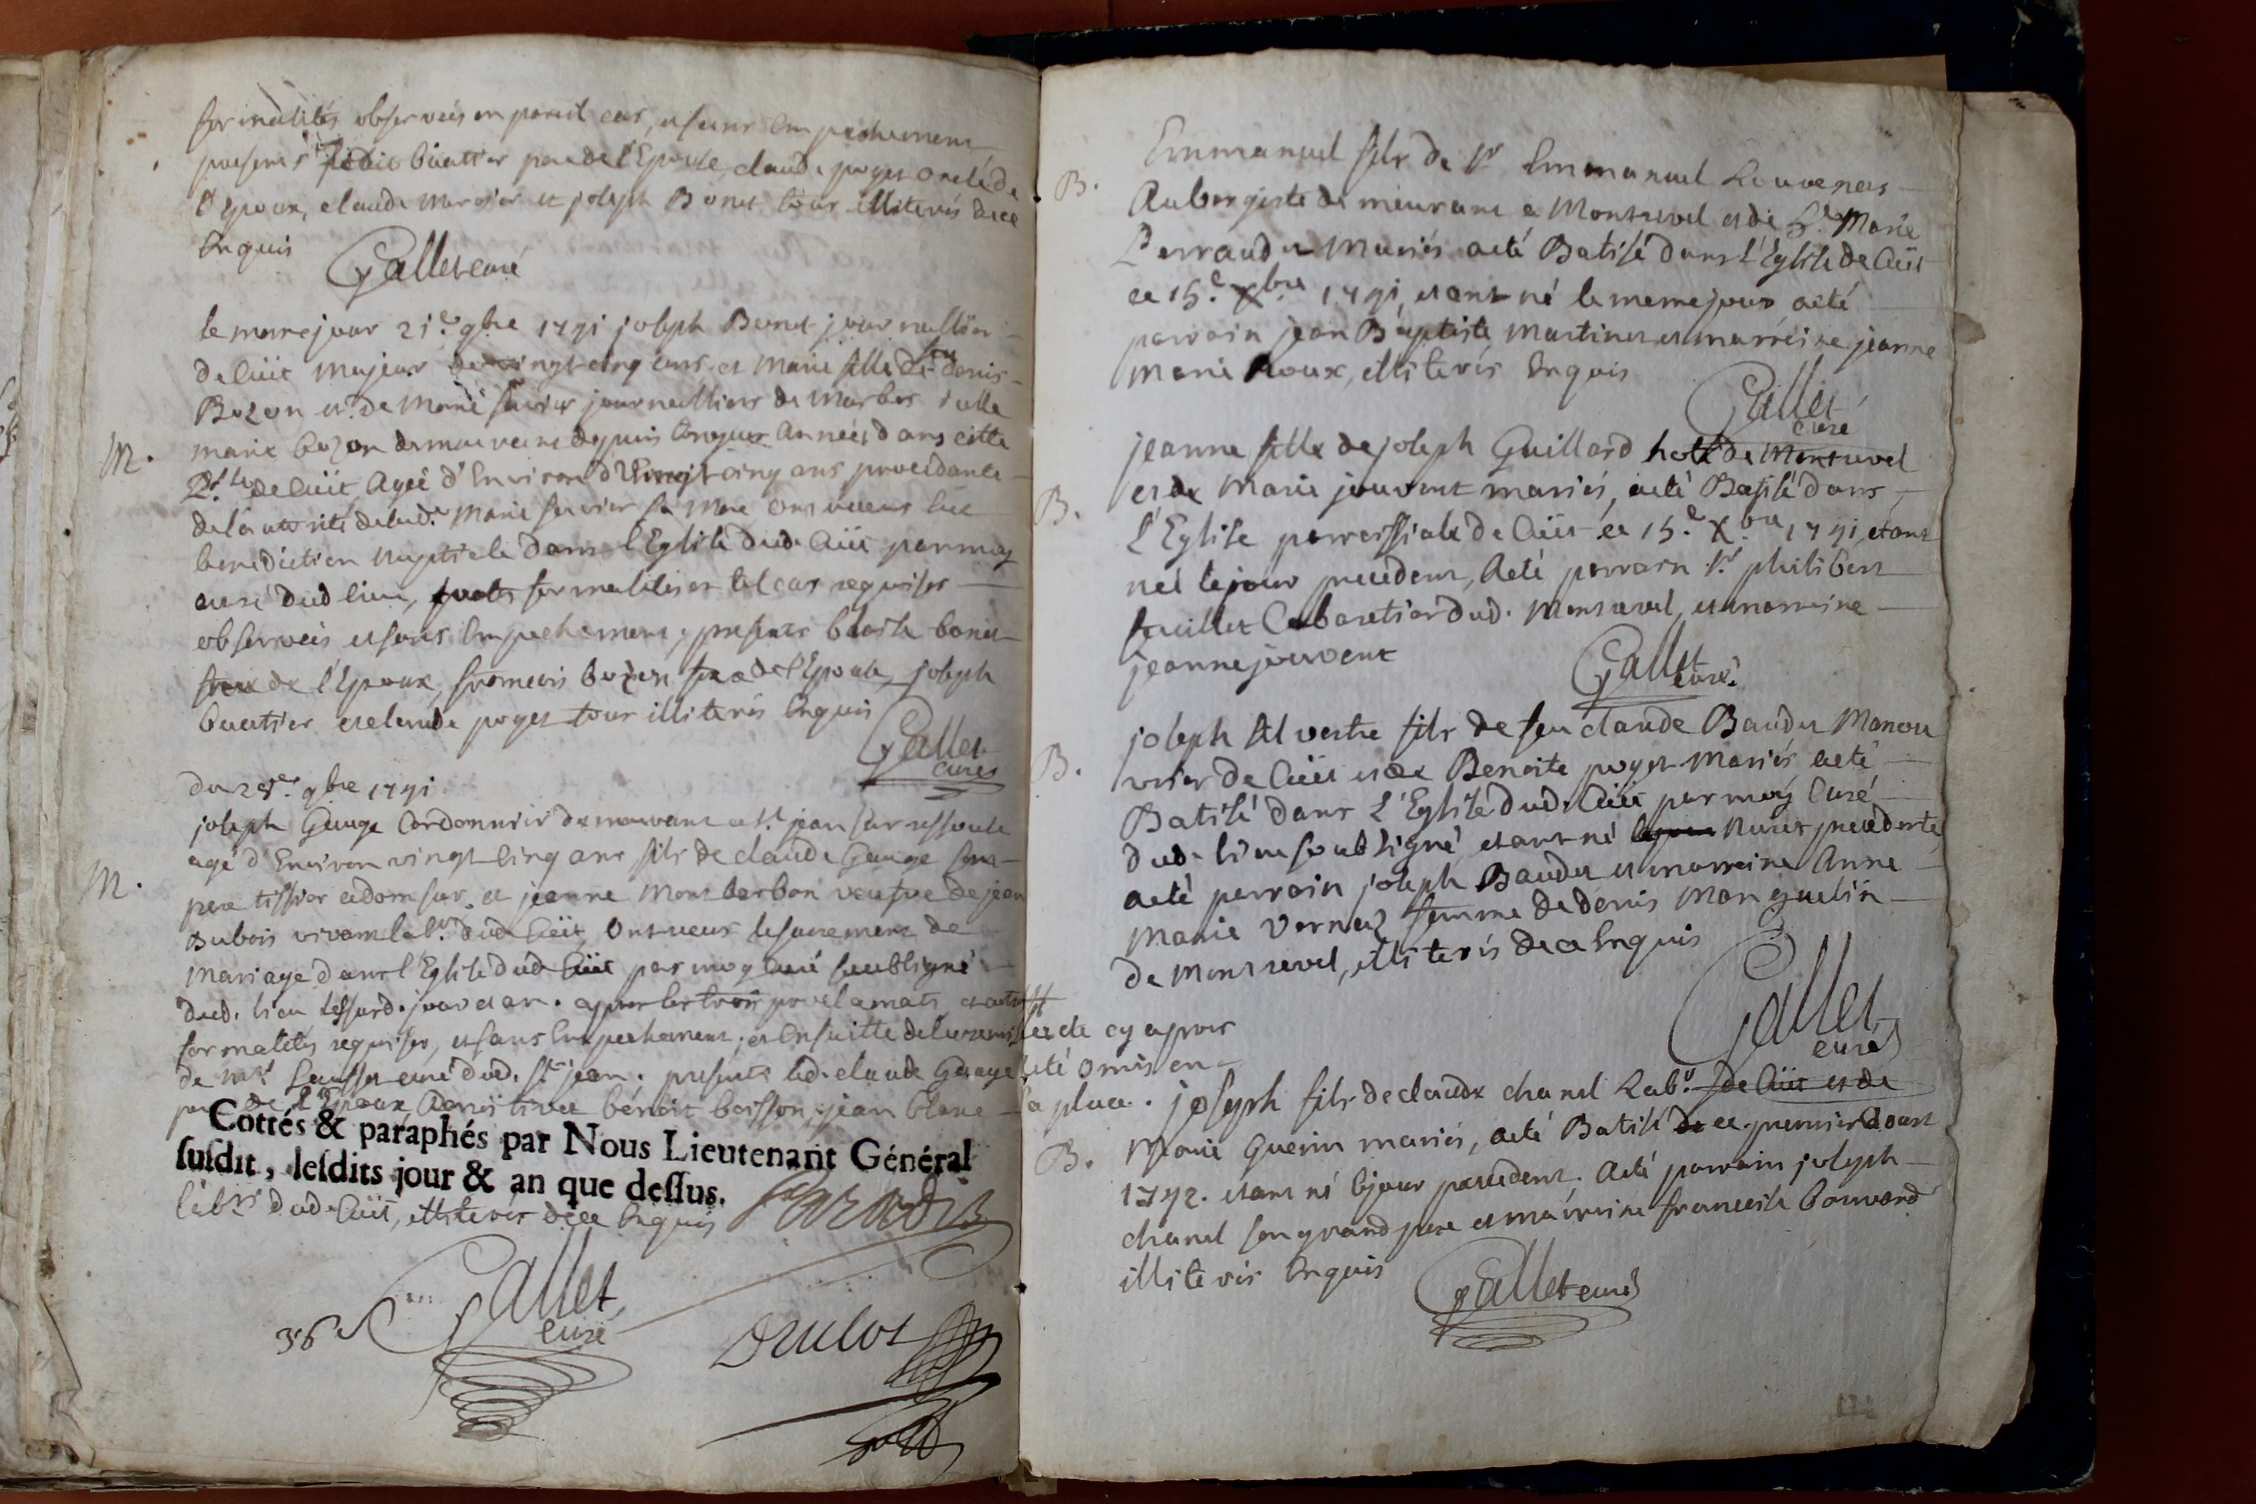 formalités observeés en pareil cas, et sans empechement
presens ledit buatier pere de l'Epouse, claude poget oncle de
l'Epoux, claude mercier et joseph Bonet tous illiterés de ce
Enquis
Gallet curé
le meme jour 21e. 9bre 1791 joseph Bonet journallier
de Cüit majeur de vingt cinq ans et Marie fille de feu denis
Bozon et de Marie journalliers de Marbos icelle
M.
marie bozon demeurante depuis longues Années dans cette
psse de Cüit Ageé d'Environ vingt cinq ans procedante
de l'autorité de lade. Marie sa Mere ont receus luë
benediction nuptiale dans l'Eglise dud. Cüit par moy
curé dud lieu, formalités en tel cas requises
observeés et sans Empechement, presents blaise bonet
frere de l'Epoux, francois bozon de l'Epouse, joseph
buatier et claude poget tous illiterés Enquis
Gallet
curé
du 9bre 1791
joseph Gauge Cordonnier demeurant a St. jean sur ressouse
agé d'Environ vingt cinq ans fils de claude Gauge son
M.
pere tissier a domsur. et jeanne Montbarbon veufve de jean
Dubois vivant labr. dud Cüit, Ont receus le sacrement de
Mariage dans l'Eglise dud Cüit par moy curé soubsigné
dud. lieu lesd. jour et an. apres les trois proclamats et autres
formalités requises, et sans Empechement, et Ensuitte de la remise
de Mr. curé dud. St. jean. presents led. claude Gauge
pere de l'Epoux, benoit boisson, jean blanc
Cottés & paraphés par Nous Lieutenant Général
susdit, lesdits jour & an que dessus.
labrs. dud. Cüit, illiterés de ce Enquis
Gallet
curé
36e
B.
Emmanuel fils de Sr Emmanuel Louvenas
Aubergiste demeurant a Montrevel et de de. Marie
Perraudin Mariés aeté Batisé dans l'Eglise de Cüit
ce 15e. Xbre 1791, etant né le meme jour aeté
parrain jean Baptiste Martinet et marreine jeanne
Marie Roux, illiterés Enquis
Gallet
curé
jeanne fille de joseph Guillard hote de Montrevel
B.
et de Marie jouvent mariés, aeté Batisé dans
L'Eglise parroissiale de Cüit ce 15e. Xbre 1791 etant
neé le jour precedent, Aeté parrain Sr. philibert
feuillet Cabaretier dud. Montrevel, et marreine
jeanne jouvent
Gallet
curé.
joseph silvestre fils de feu claude Baudu Manou
B.
vrier de Cüit et de Benoite poget Mariés aeté
Batisé dans L'Eglise dud. Cüit par moy Curé
dud. lieu soubsigné etant né Nuit precedente
aeté perrain joseph Baudu et marreine Anne
Marie Vernez femme de denis Manguelin
de Montrevel, illiterés de ce Enquis
Gallet
curé
acte cy apres
eté omis en
sa place. joseph fils de claude chanel Labr. de Cüit et de
B.
Marie Guerin mariés, aeté Batisé ce premier Aoust
1792. etant né le jour precedent. Aeté parrain joseph
chanel son grand pere et marreine francoise bouvard
illiterés Enquis
Gallet curé